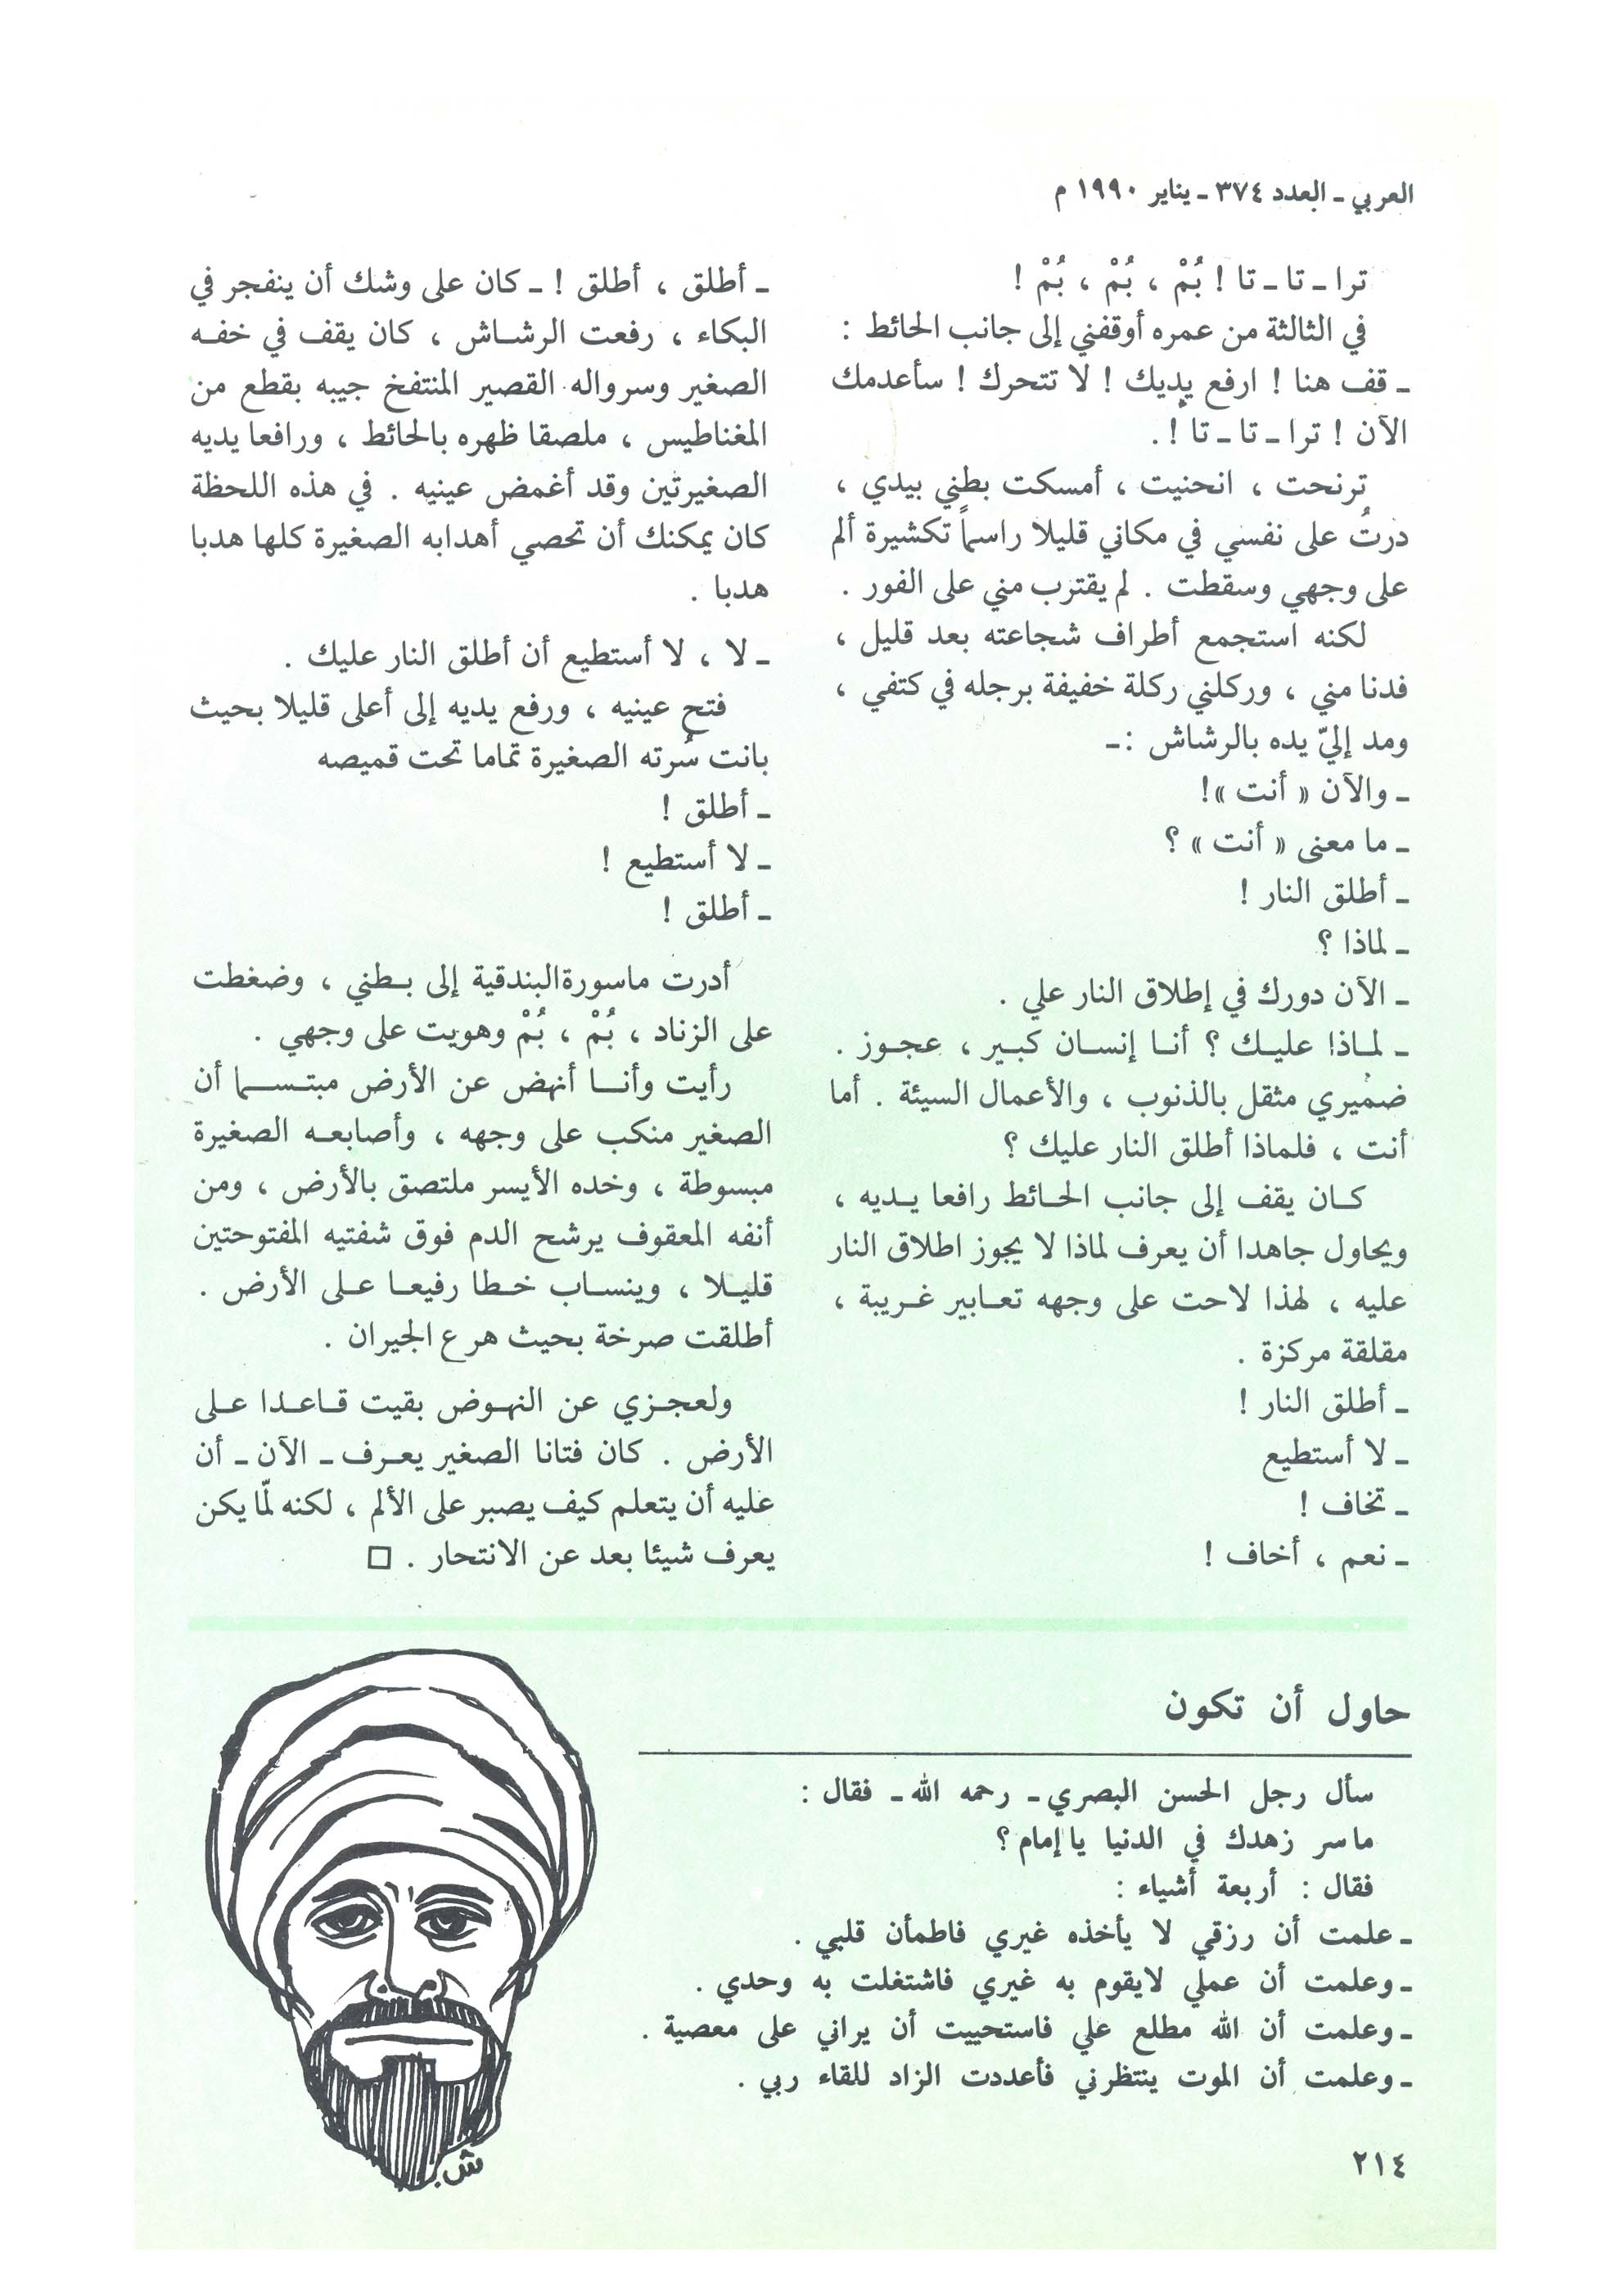 العربي ـ العدد ٣٧٤ ـ يناير ١٩٩٠ م
ترا ـ تا ـ تا ! بُمْ ، بُمْ ، بُمْ !
في الثالثة من عمره أوقفني إلى جانب الحائط :
ـ قف هنا ! ارفع يديك ! لا تتحرك ! سأعدمك
الآن ! ترا ـ تا ـ تا ! .
ترنحت ، انحنيت ، أمسكت بطني بيدي ،
درتُ على نفسي في مكاني قليلا راسماً تكشيرة ألم
على وجهي وسقطت . لم يقترب مني على الفور .
لكنه استجمع أطراف شجاعته بعد قليل ،
فدنا مني ، وركلني ركلة خفيفة برجله في كتفي ،
ومد إليّ يده بالرشاش :ـ
ـ والآن « أنت »!
ـ ما معنى « أنت » ؟
ـ أطلق النار !
ـ لماذا ؟
ـ الآن دورك في إطلاق النار علي .
ـ لماذا عليك ؟ أنا إنسان كبير ، عجوز .
ضميري مثقل بالذنوب ، والأعمال السيئة . أما
أنت ، فلماذا أطلق النار عليك ؟
كان يقف إلى جانب الحائط رافعا يديه ،
ويحاول جاهدا أن يعرف لماذا لا يجوز اطلاق النار
عليه ، لهذا لاحت على وجهه تعابير غريبة ،
مقلقة مركزة .
ـ أطلق النار !
ـ لا أستطيع
ـ تخاف !
ـ نعم ، أخاف !
ـ أطلق ، أطلق ! ـ كان على وشك أن ينفجر في
البكاء ، رفعت الرشاش ، كان يقف في خفه
الصغير وسرواله القصير المنتفخ جيبه بقطع من
المغناطيس ، ملصقا ظهره بالحائط ، ورافعا يديه
الصغيرتين وقد أغمض عينيه . في هذه اللحظة
كان يمكنك أن تحصي أهدابه الصغيرة كلها هدبا
هدبا .
ـ لا ، لا أستطيع أن أطلق النار عليك .
فتح عينيه ، ورفع يديه إلى أعلى قليلا بحيث
بانت سُرته الصغيرة تماما تحت قميصه
ـ أطلق !
ـ لا أستطيع !
ـ أطلق !
أدرت ماسورة البندقية إلى بطني ، وضغطت
على الزناد ، بُمْ ، بُمْ وهويت على وجهي .
رأيت وأنا أنهض عن الأرض مبتسما أن
الصغير منكب على وجهه ، وأصابعه الصغيرة
مبسوطة ، وخده الأيسر ملتصق بالأرض ، ومن
أنفه المعقوف يرشح الدم فوق شفتيه المفتوحتين
قليلا ، وينساب خطا رفيعا على الأرض .
أطلقت صرخة بحيث هرع الجيران .
ولعجزي عن النهوض بقيت قاعدا على
الأرض . كان فتانا الصغير يعرف ـ الآن ـ أن
عليه أن يتعلم كيف يصبر على الألم ، لكنه لمّا يكن
يعرف شيئا بعد عن الانتحار . □
حاول أن تكون
سأل رجل الحسن البصري ـ رحمه الله ـ فقال :
ما سر زهدك في الدنيا يا إمام ؟
فقال : أربعة أشياء :
ـ علمت أن رزقي لا يأخذه غيري فاطمأن قلبي .
ـ وعلمت أن عملي لايقوم به غيري فاشتغلت به وحدي .
ـ وعلمت أن الله مطلع علي فاستحييت أن يراني على معصية .
ـ وعلمت أن الموت ينتظرني فأعددت الزاد للقاء ربي .
٢١٤